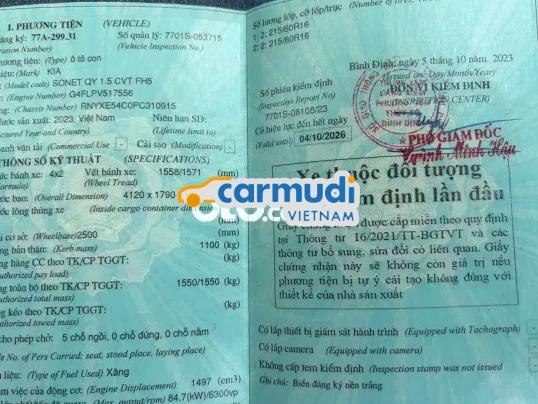 I. PHƯƠNG TIỆN (VEHICLE)
đăng ký: 77A-299.31 Số quản lý: 7701S-053715
Number) (Vehicle Inspection No.)
phương tiện: (Type) ô tô con
(Mark) KIA
(Model code) SONET QY 1.5 CVT FH5
(Engine Number) G4FLPV517556
(Chassis Number) RNYXE54C0PC310915
sản xuất: 2023, Việt Nam Niên hạn SD:
Year and Country) (Lifetime limit to)
doanh vận tải (Commercial Use) Cải tạo (Modification)
THÔNG SỐ KỸ THUẬT (SPECIFICATIONS)
thức bánh xe: 4x2 Vết bánh xe: 1558/1571 (mm)
formula) (Wheel Tread)
bao: (Overall Dimension) 4120 x 1790 (mm)
lòng thùng xe (Inside cargo container dimension) (mm)
cơ sở: (Wheelbase) 2500 (mm)
bản thân: (Kerb mass) 1100 (kg)
hàng CC theo TK/CP TGGT: (kg)
pay load)
toàn bộ theo TK/CP TGGT: 1550/1550 (kg)
total mass)
kéo theo TK/CP TGGT: (kg)
towed mass)
cho phép chở: 5 chỗ ngồi, 0 chỗ đứng, 0 chỗ nằm
No. of Pers Carried: seat, stood place, laying place)
liệu: (Type of Fuel Used) Xăng
làm việc của động cơ: (Engine Displacement) 1497 (cm3)
(Max. output/rpm) 84.7(kW)/6300vph
Số lượng lốp, cỡ lốp/trục (Number of
1: 2: 215/60R16
2: 2: 215/60R16
Bình Định, ngày 5 tháng 10 năm 2023
(Issued on: Day/Month/Year)
Số phiếu kiểm định ĐƠN VỊ KIỂM ĐỊNH
(Inspection Report No) (INSPECTION CENTER)
7701S-08108/23
Có hiệu lực đến hết ngày
(Valid until) 04/10/2026
PHÓ GIÁM ĐỐC
Huỳnh Minh Hậu
Xe thuộc đối tượng
kiểm định lần đầu
carmudi
VIETNAM
Giấy chứng nhận được cấp miễn theo quy định
tại Thông tư 16/2021/TT-BGTVT và các
thông tư bổ sung, sửa đổi có liên quan. Giấy
chứng nhận này sẽ không còn giá trị nếu
phương tiện bị tự ý cải tạo không đúng với
thiết kế của nhà sản xuất
Có lắp thiết bị giám sát hành trình (Equipped with Tachograph)
Có lắp camera (Equipped with camera)
Không cấp tem kiểm định (Inspection stamp was not issued
Ghi chú: Biển đăng ký nền trắng